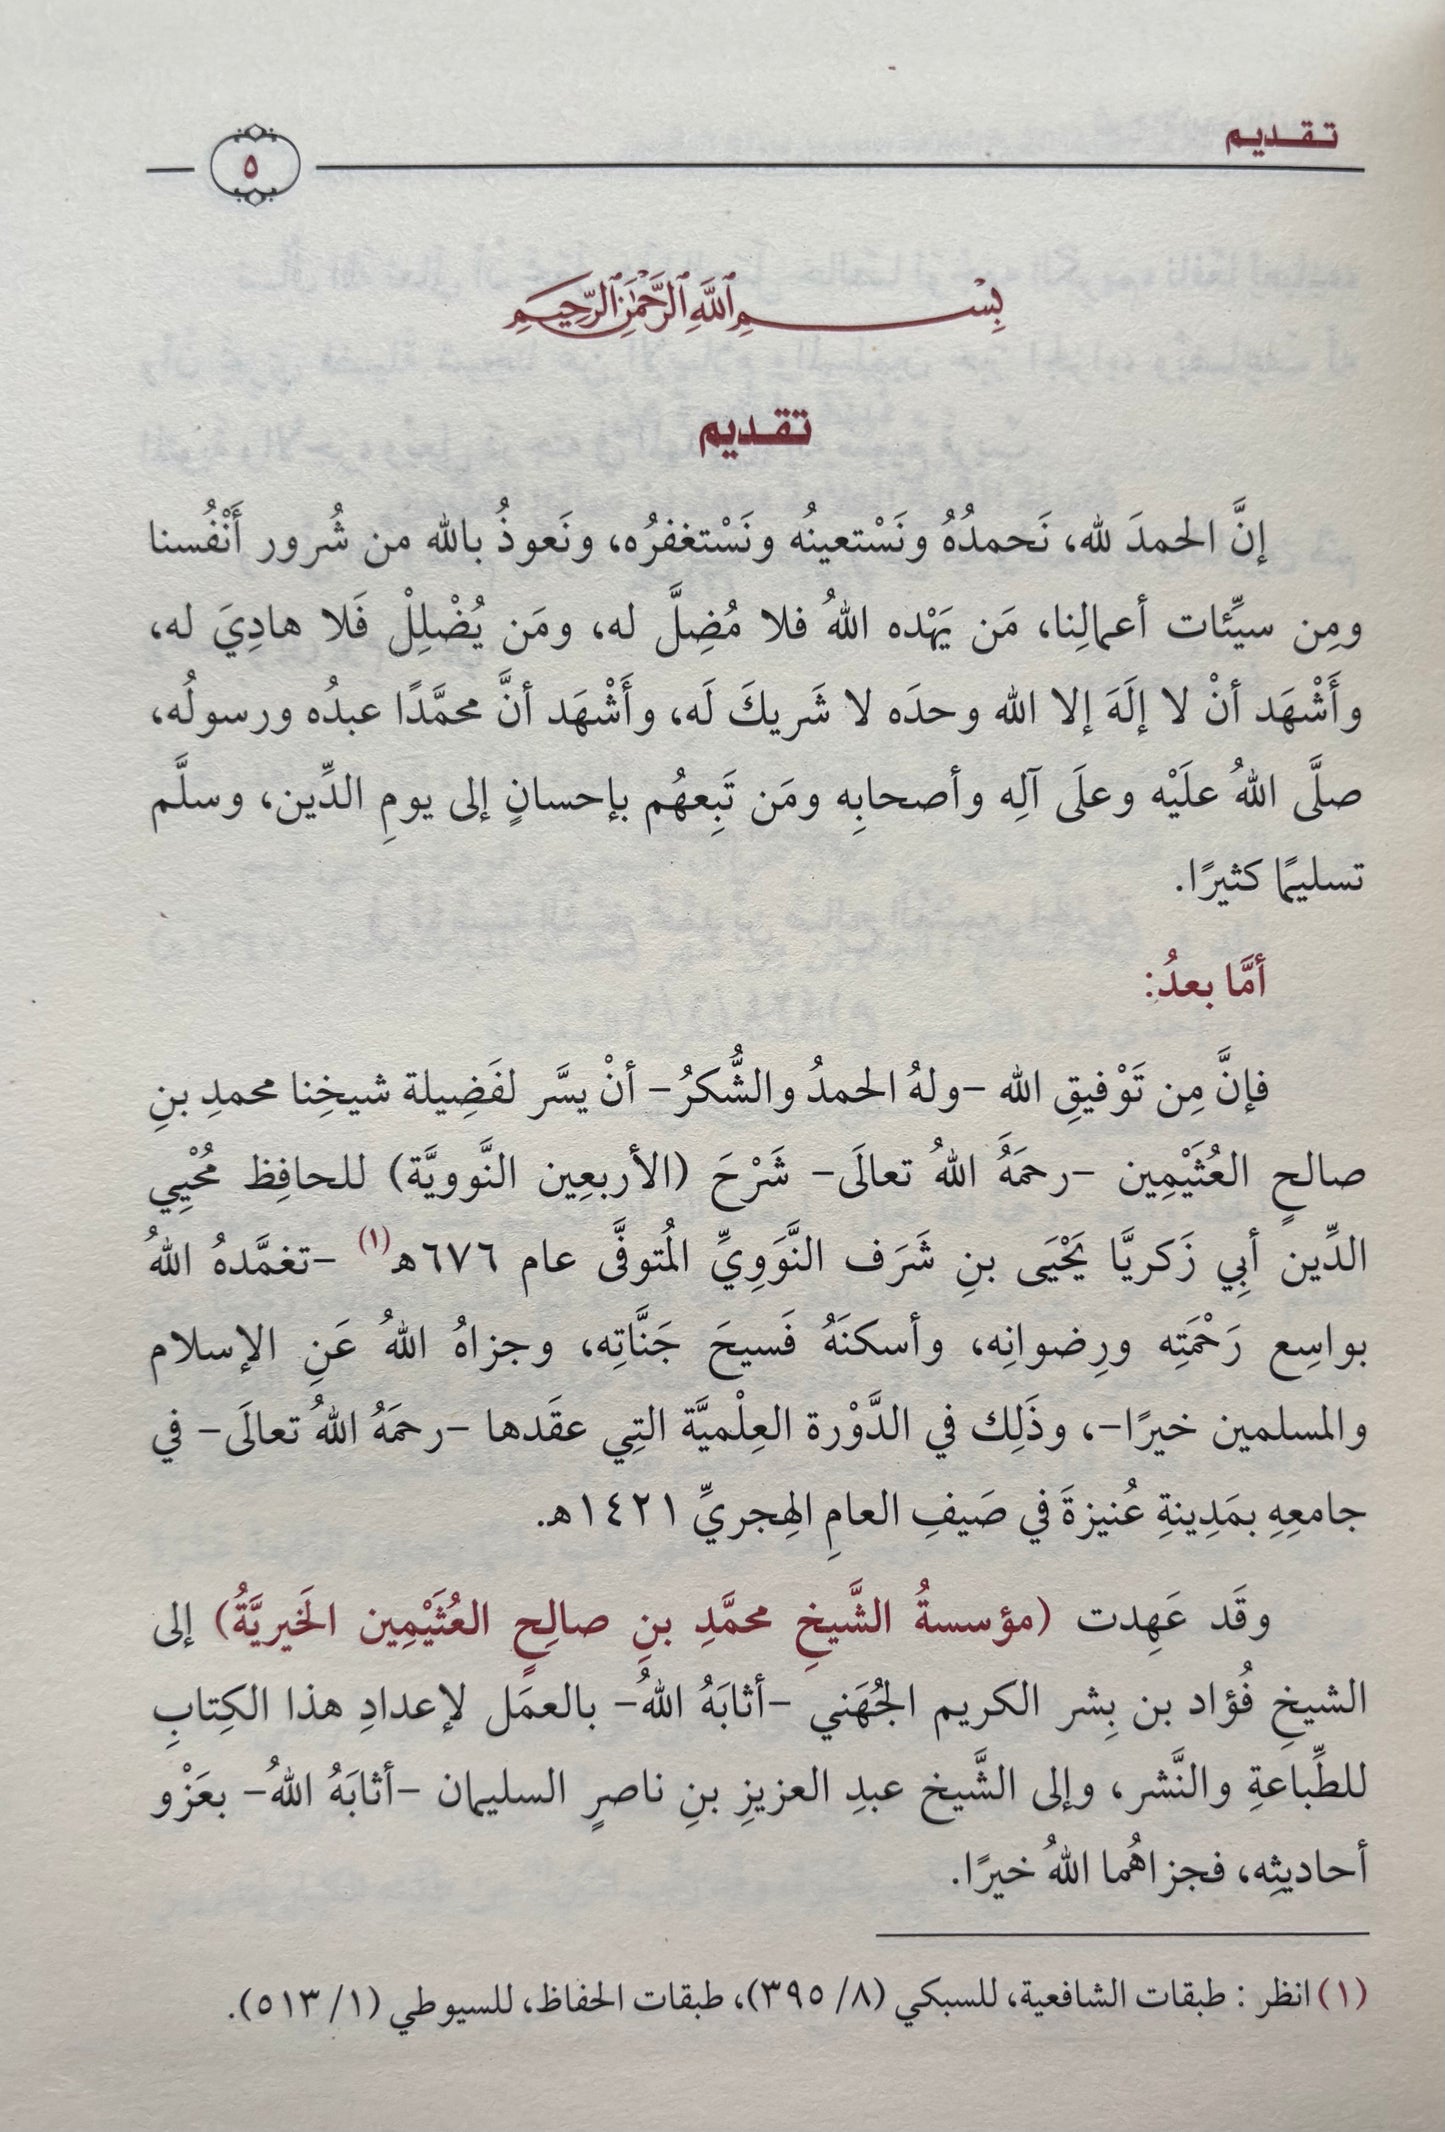 تقديم
٥
بِسْمِ اللَّهِ الرَّحْمَٰنِ الرَّحِيمِ
تقديم
إنَّ الحمدَ لله، نَحمدُهُ ونَسْتعينُه ونَسْتغفرُه، ونَعوذُ بالله من شُرور أَنْفُسنا
ومِن سيِّئات أعمالِنا، مَن يَهْده اللهُ فلا مُضِلَّ له، ومَن يُضْلِلْ فَلا هادِيَ له،
وأَشْهَد أنْ لا إلَهَ إلا الله وحدَه لا شَريكَ لَه، وأَشْهَد أنَّ محمَّدًا عبدُه ورسولُه،
صلَّى اللهُ علَيْه وعلَى آلِه وأصحابِه ومَن تَبِعهُم بإحسانٍ إلى يومِ الدِّين، وسلَّم
تسليمًا كثيرًا.
أمَّا بعدُ:
فإنَّ مِن تَوْفيقِ الله -ولهُ الحمدُ والشُّكرُ- أنْ يسَّر لفَضِيلة شيخِنا محمدِ بنِ
صالحٍ العُثَيْمِين -رحمَهُ اللهُ تعالَى- شَرْحَ (الأربعِين النَّوويَّة) للحافِظ مُحْيِي
الدِّين أبِي زَكريَّا يَحْيَى بنِ شَرَف النَّوَوِيِّ المُتوفَّى عام ٦٧٦هـ(١) -تغمَّدهُ اللهُ
بواسِع رَحْمَتِه ورِضوانِه، وأسكنَهُ فَسيحَ جَنَّاتِه، وجزاهُ اللهُ عَنِ الإسلام
والمسلمين خيرًا-، وذَلِك في الدَّوْرة العِلْميَّة التِي عقَدها -رحمَهُ اللهُ تعالَى- في
جامعِهِ بمَدِينةِ عُنيزةَ في صَيفِ العامِ الهِجريِّ ١٤٢١هـ.
وقَد عَهِدت (مؤسسةُ الشَّيخِ محمَّدِ بنِ صالِحٍ العُثَيْمِين الخَيريَّةُ) إلى
الشيخِ فُؤاد بن بِشر الكريم الجُهَني -أثابَهُ اللهُ- بالعمَل لإعدادِ هذا الكِتابِ
للطِّباعةِ والنَّشر، وإلى الشَّيخ عبدِ العزيزِ بنِ ناصرٍ السليمان -أثابَهُ اللهُ- بعَزْو
أحاديثِه، فجزاهُما اللهُ خيرًا.
(١) انظر : طبقات الشافعية، للسبكي (٨/ ٣٩٥)، طبقات الحفاظ، للسيوطي (١/ ٥١٣).